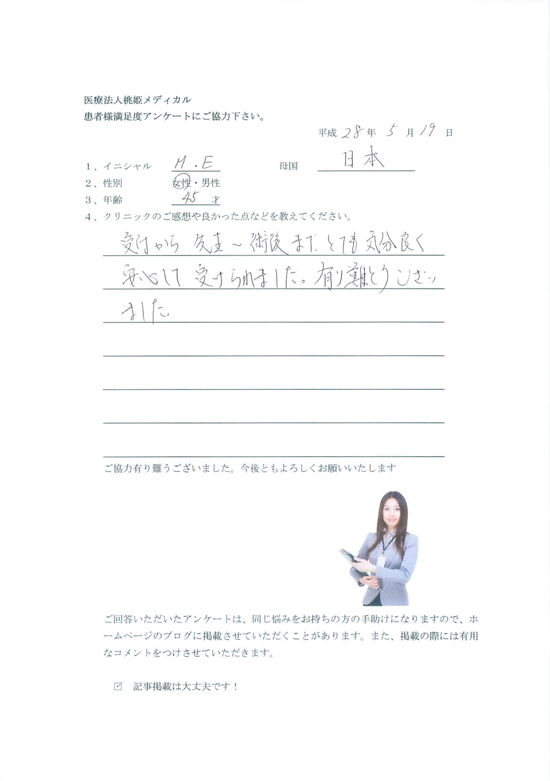 医療法人桃姫メディカル
患者様満足度アンケートにご協力下さい。
平成 28 年 5 月 19 日
1、イニシャル M.E 母国 日本
2、性別 女性・男性
3、年齢 45 才
4、クリニックのご感想や良かった点などを教えてください。
受付から 先生〜術後まで とても気分良く
安心して 受けられました。有り難とうござい
ました
ご協力有り難うございました。今後ともよろしくお願いいたします
ご回答いただいたアンケートは、同じ悩みをお持ちの方の手助けになりますので、ホ
ームページのブログに掲載させていただくことがあります。また、掲載の際には有用
なコメントをつけさせていただきます。
☑ 記事掲載は大丈夫です！